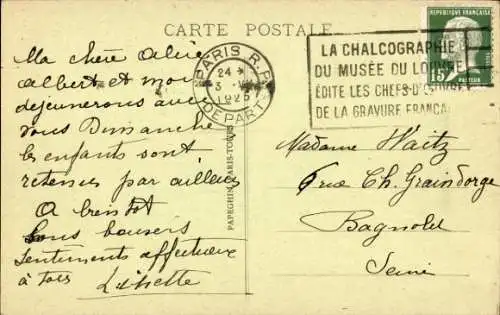 CARTE POSTALE
Ma chère Alice
Albert et moi
dejeunerons avec
vous Dimanche
les enfants sont
retenus par ailleurs
A bientot
Bons baisers
Sentiments affectueux
à tous Lisette
PARIS R.P.
24
3
1925
DEPART
PAPEGHIN, PARIS-TOURS
LA CHALCOGRAPHIE
DU MUSÉE DU LOUVRE
ÉDITE LES CHEFS-D'OEUVRE
DE LA GRAVURE FRANÇAI
REPUBLIQUE FRANÇAISE
15
PASTEUR
Madame Waitz
6 rue Ch. Graindorge
Bagnolet
Seine